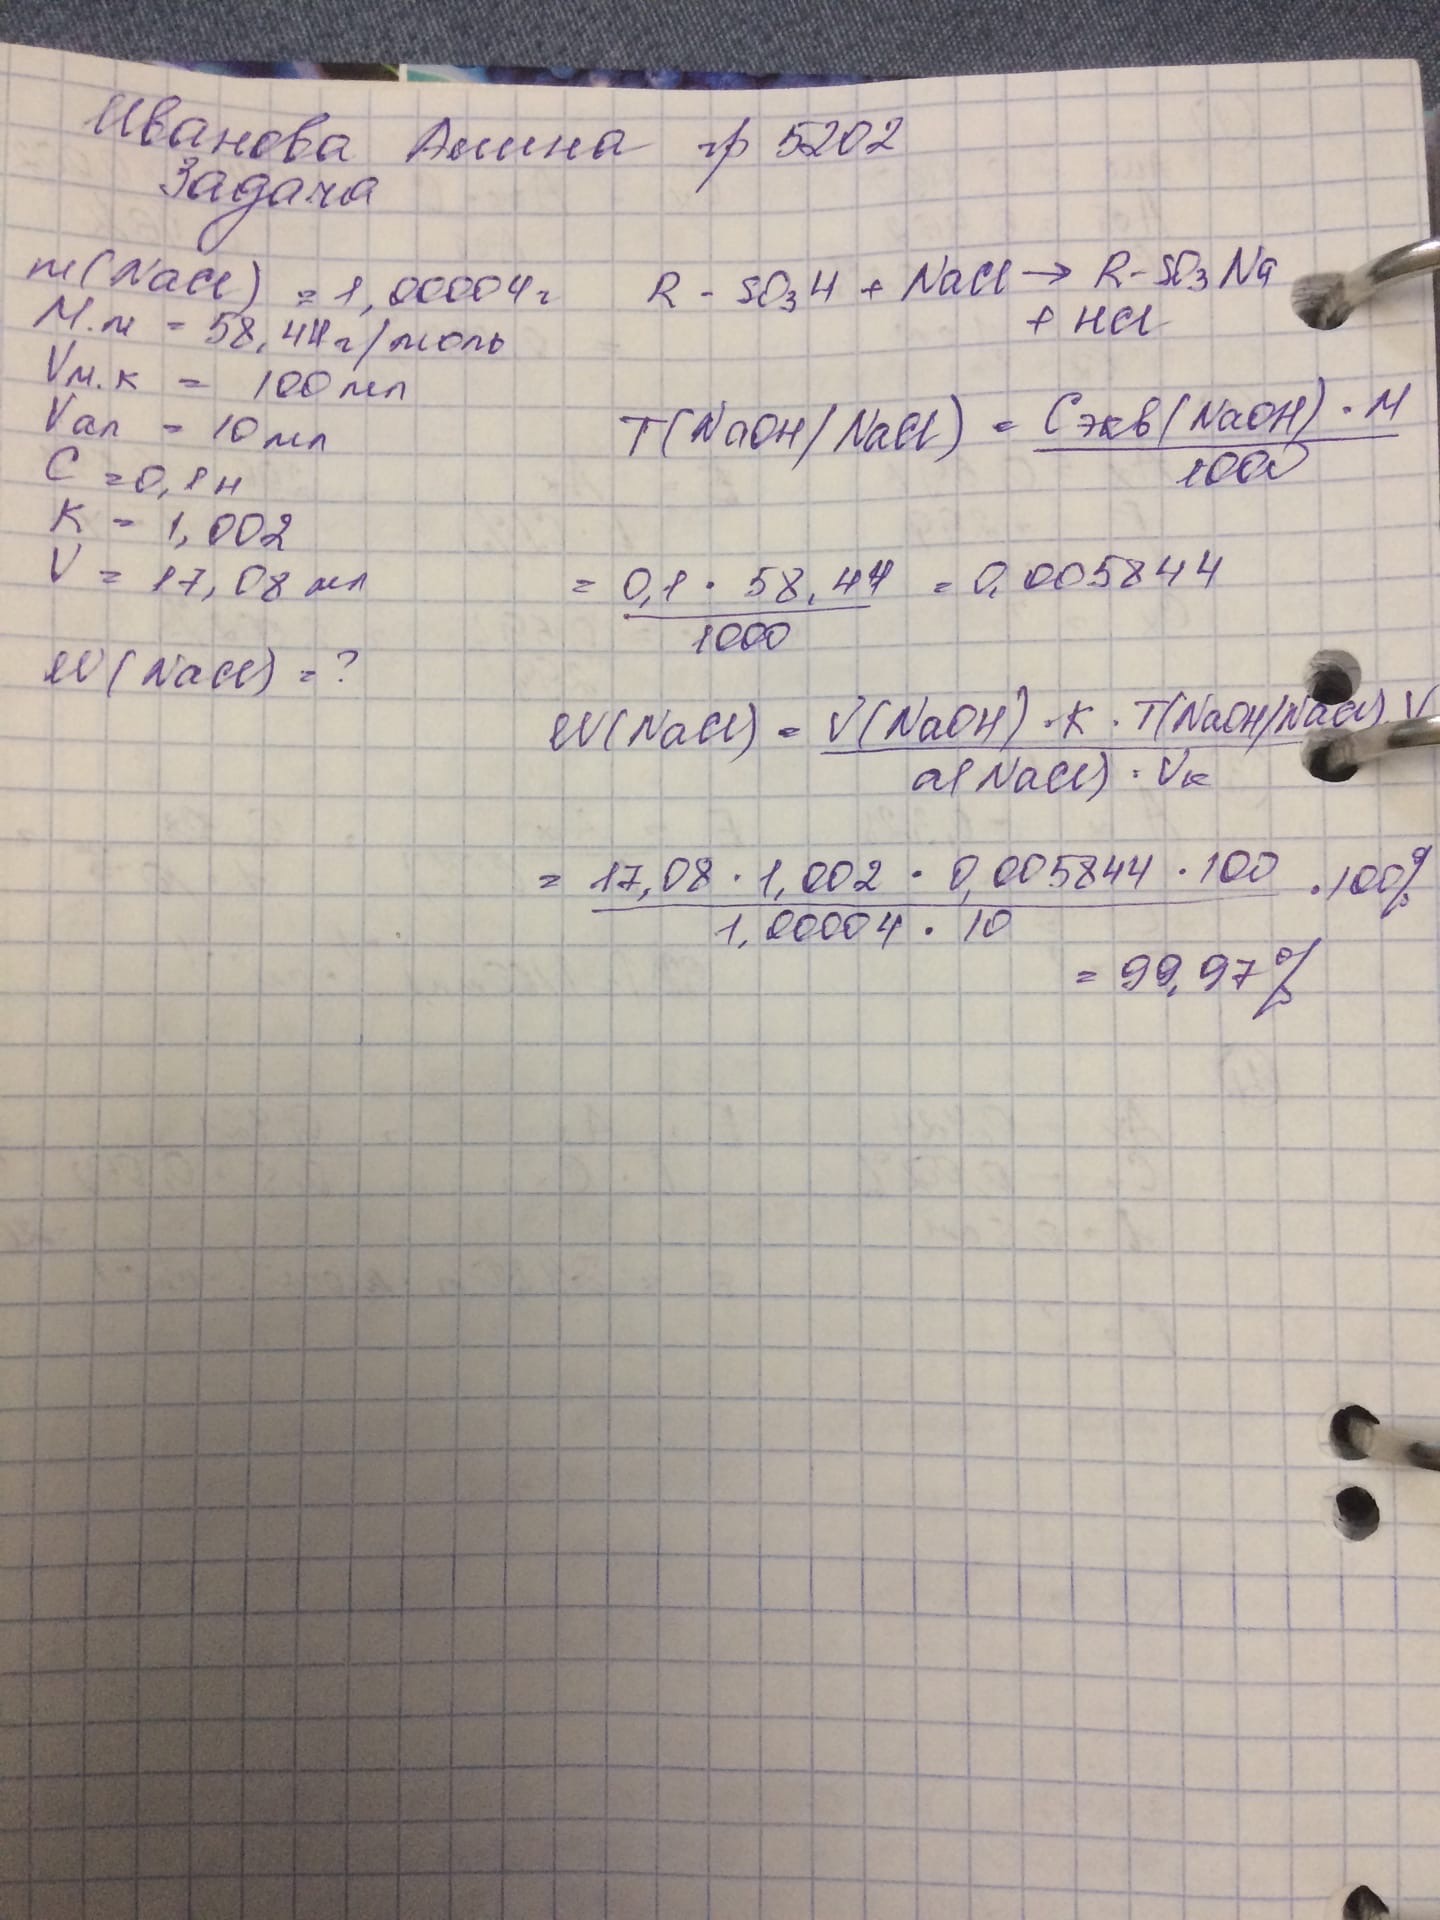 Иванова Алина гр 5202
Задача
m(NaCl) = 1,00004г
М.м = 58,44г/моль
Vм.к = 100мл
Vал = 10мл
С = 0,1н
К = 1,002
V = 17,08 мл
W(NaCl) = ?
R - SO₃H + NaCl → R - SO₃Na
+ HCl
T(NaOH/NaCl) = Cэкв(NaOH) · M
1000
= 0,1 · 58,44 = 0,005844
1000
W(NaCl) = V(NaOH) · K · T(NaOH/NaCl) · V
a(NaCl) · Vк
= 17,08 · 1,002 · 0,005844 · 100 · 100%
1,00004 · 10
= 99,97%